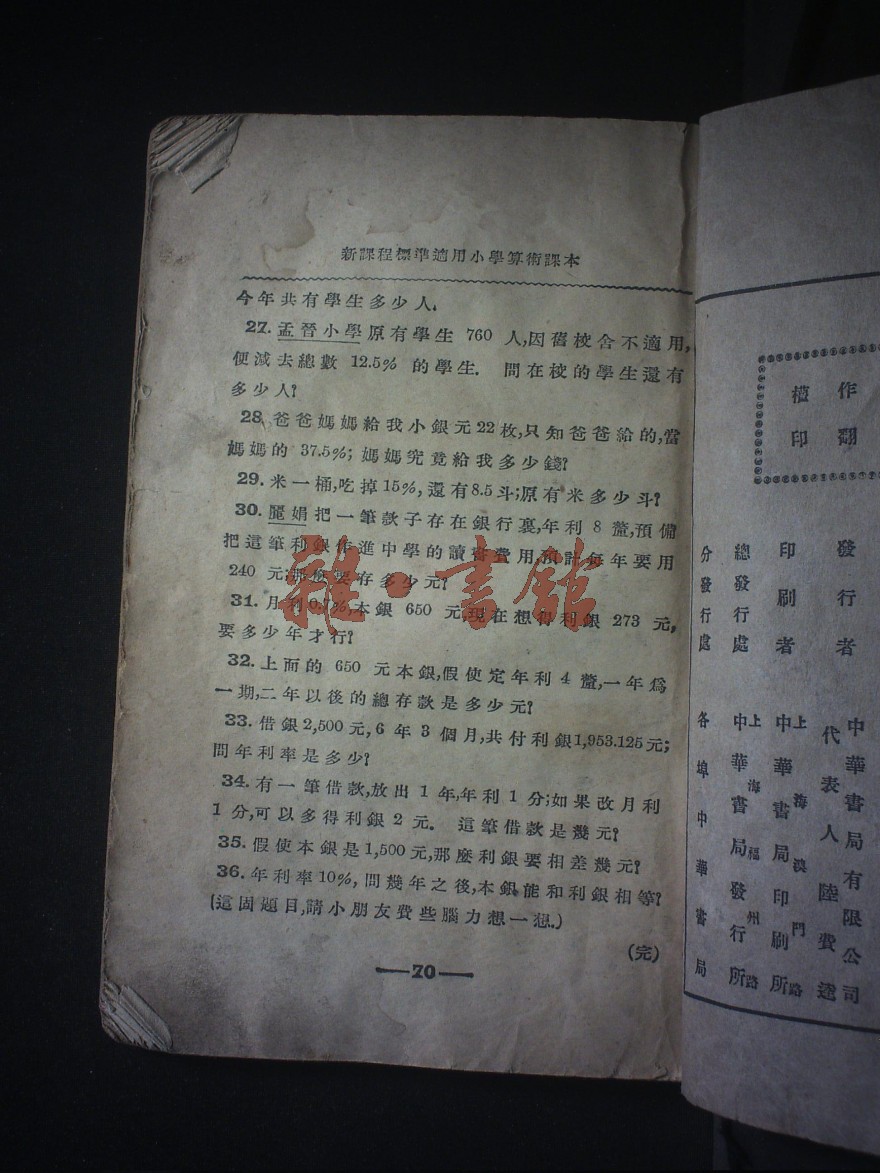 新課程標準適用小學算術課本
今年共有學生多少人.
27. 孟晉小學原有學生 760 人,因舊校舍不適用,
便減去總數 12.5% 的學生. 問在校的學生還有
多少人?
28. 爸爸媽媽給我小銀元22枚,只知爸爸給的,當
媽媽的 37.5%; 媽媽究竟給我多少錢?
29. 米一桶,吃掉15%, 還有8.5斗;原有米多少斗?
30. 麗娟把一筆款子存在銀行裏,年利 8 釐,預備
把這筆利銀作進中學的讀書費用,預計每年要用
240 元;那麼要存多少元?
31. 月利0.7%,本銀 650 元,現在想得利銀 273 元,
要多少年才行?
32. 上面的 650 元本銀,假使定年利 4 釐,一年爲
一期,二年以後的總存款是多少元?
33. 借銀2,500元, 6 年 3 個月,共付利銀1,953.125元;
問年利率是多少?
34. 有一筆借款,放出 1 年,年利 1 分;如果改月利
1 分,可以多得利銀 2 元. 這筆借款是幾元?
35. 假使本銀是1,500元,那麼利銀要相差幾元?
36. 年利率10%, 問幾年之後,本銀能和利銀相等?
(這固題目,請小朋友費些腦力想一想.)
(完)
—70—
雜·書館
作翻
權印
發行者 中華書局有限公司
代表人 陸費逵
印刷者 上海澳門路
中華書局印刷所
總發行處 上海福州路
中華書局發行所
分發行處 各埠中華書局